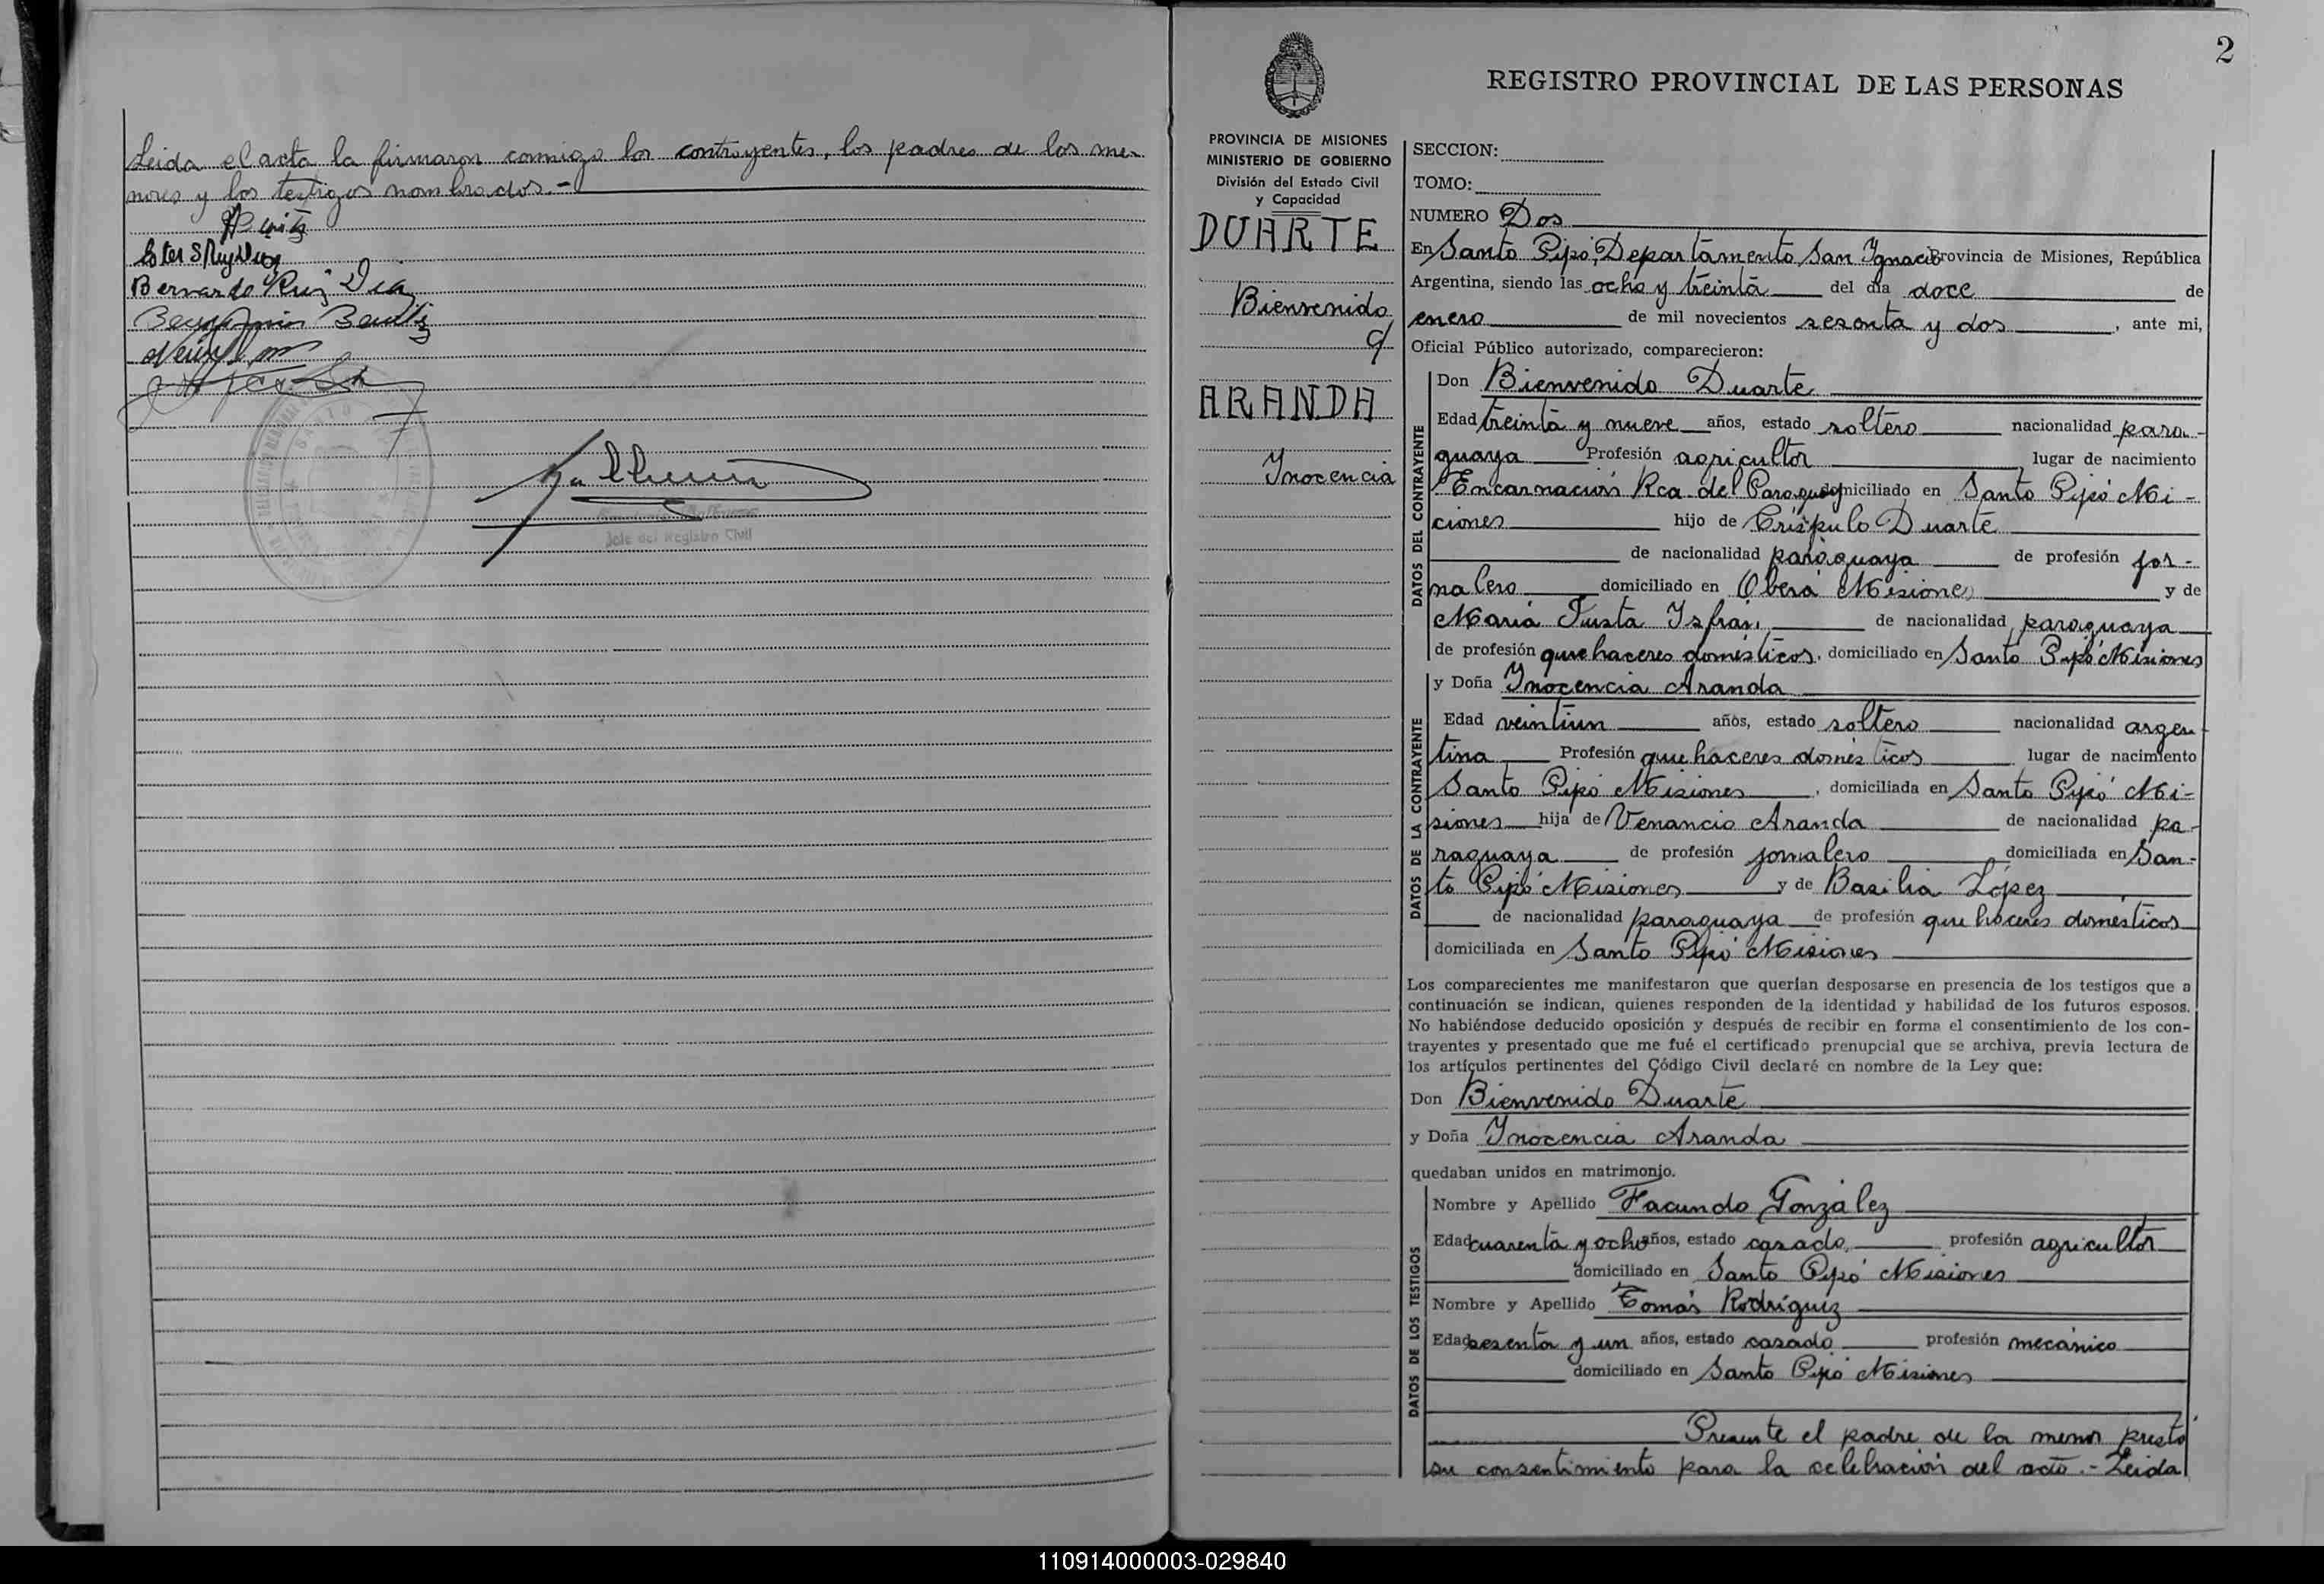 Leida el acta la firmaron conmigo los contrayentes, los padres de los me-
nores y los testigos nombrados.-
Bernardo Ruiz Dia
Jefe del Registro Civil
2
REGISTRO PROVINCIAL DE LAS PERSONAS
PROVINCIA DE MISIONES
MINISTERIO DE GOBIERNO
División del Estado Civil
y Capacidad
DUARTE
Bienvenido
c/
ARANDA
Ynocencia
SECCION:
TOMO:
NUMERO Dos
En Santo Pipó, Departamento San Ygnacio Provincia de Misiones, República
Argentina, siendo las ocho y treinta del día doce de
enero de mil novecientos sesenta y dos, ante mi,
Oficial Público autorizado, comparecieron:
DATOS DEL CONTRAYENTE
Don Bienvenido Duarte
Edad treinta y nueve años, estado soltero nacionalidad para-
guaya Profesión agricultor lugar de nacimiento
Encarnación Rca. del Paraguay domiciliado en Santo Pipó Mi-
ciones hijo de Críspulo Duarte
de nacionalidad paraguaya de profesión jor-
nalero domiciliado en Oberá Misiones y de
María Justa Ysfrán, de nacionalidad paraguaya
de profesión que haceres domésticos, domiciliado en Santo Pipó Misiones
DATOS DE LA CONTRAYENTE
y Doña Ynocencia Aranda
Edad veintiun años, estado soltero nacionalidad argen-
tina Profesión que haceres domésticos lugar de nacimiento
Santo Pipó Misiones, domiciliada en Santo Pipó Mi-
siones hija de Venancio Aranda de nacionalidad pa-
raguaya de profesión jornalero domiciliada en San-
to Pipó Misiones y de Basilia López
de nacionalidad paraguaya de profesión que haceres domésticos
domiciliada en Santo Pipó Misiones
Los comparecientes me manifestaron que querían desposarse en presencia de los testigos que a
continuación se indican, quienes responden de la identidad y habilidad de los futuros esposos.
No habiéndose deducido oposición y después de recibir en forma el consentimiento de los con-
trayentes y presentado que me fué el certificado prenupcial que se archiva, previa lectura de
los artículos pertinentes del Código Civil declaré en nombre de la Ley que:
Don Bienvenido Duarte
y Doña Ynocencia Aranda
quedaban unidos en matrimonio.
DATOS DE LOS TESTIGOS
Nombre y Apellido Facundo González
Edad cuarenta y ocho años, estado casado profesión agricultor
domiciliado en Santo Pipó Misiones
Nombre y Apellido Tomás Rodríguez
Edad sesenta y un años, estado casado profesión mecánico
domiciliado en Santo Pipó Misiones
Presente el padre de la menor prestó
su consentimiento para la celebración del acto.- Leida
110914000003-029840